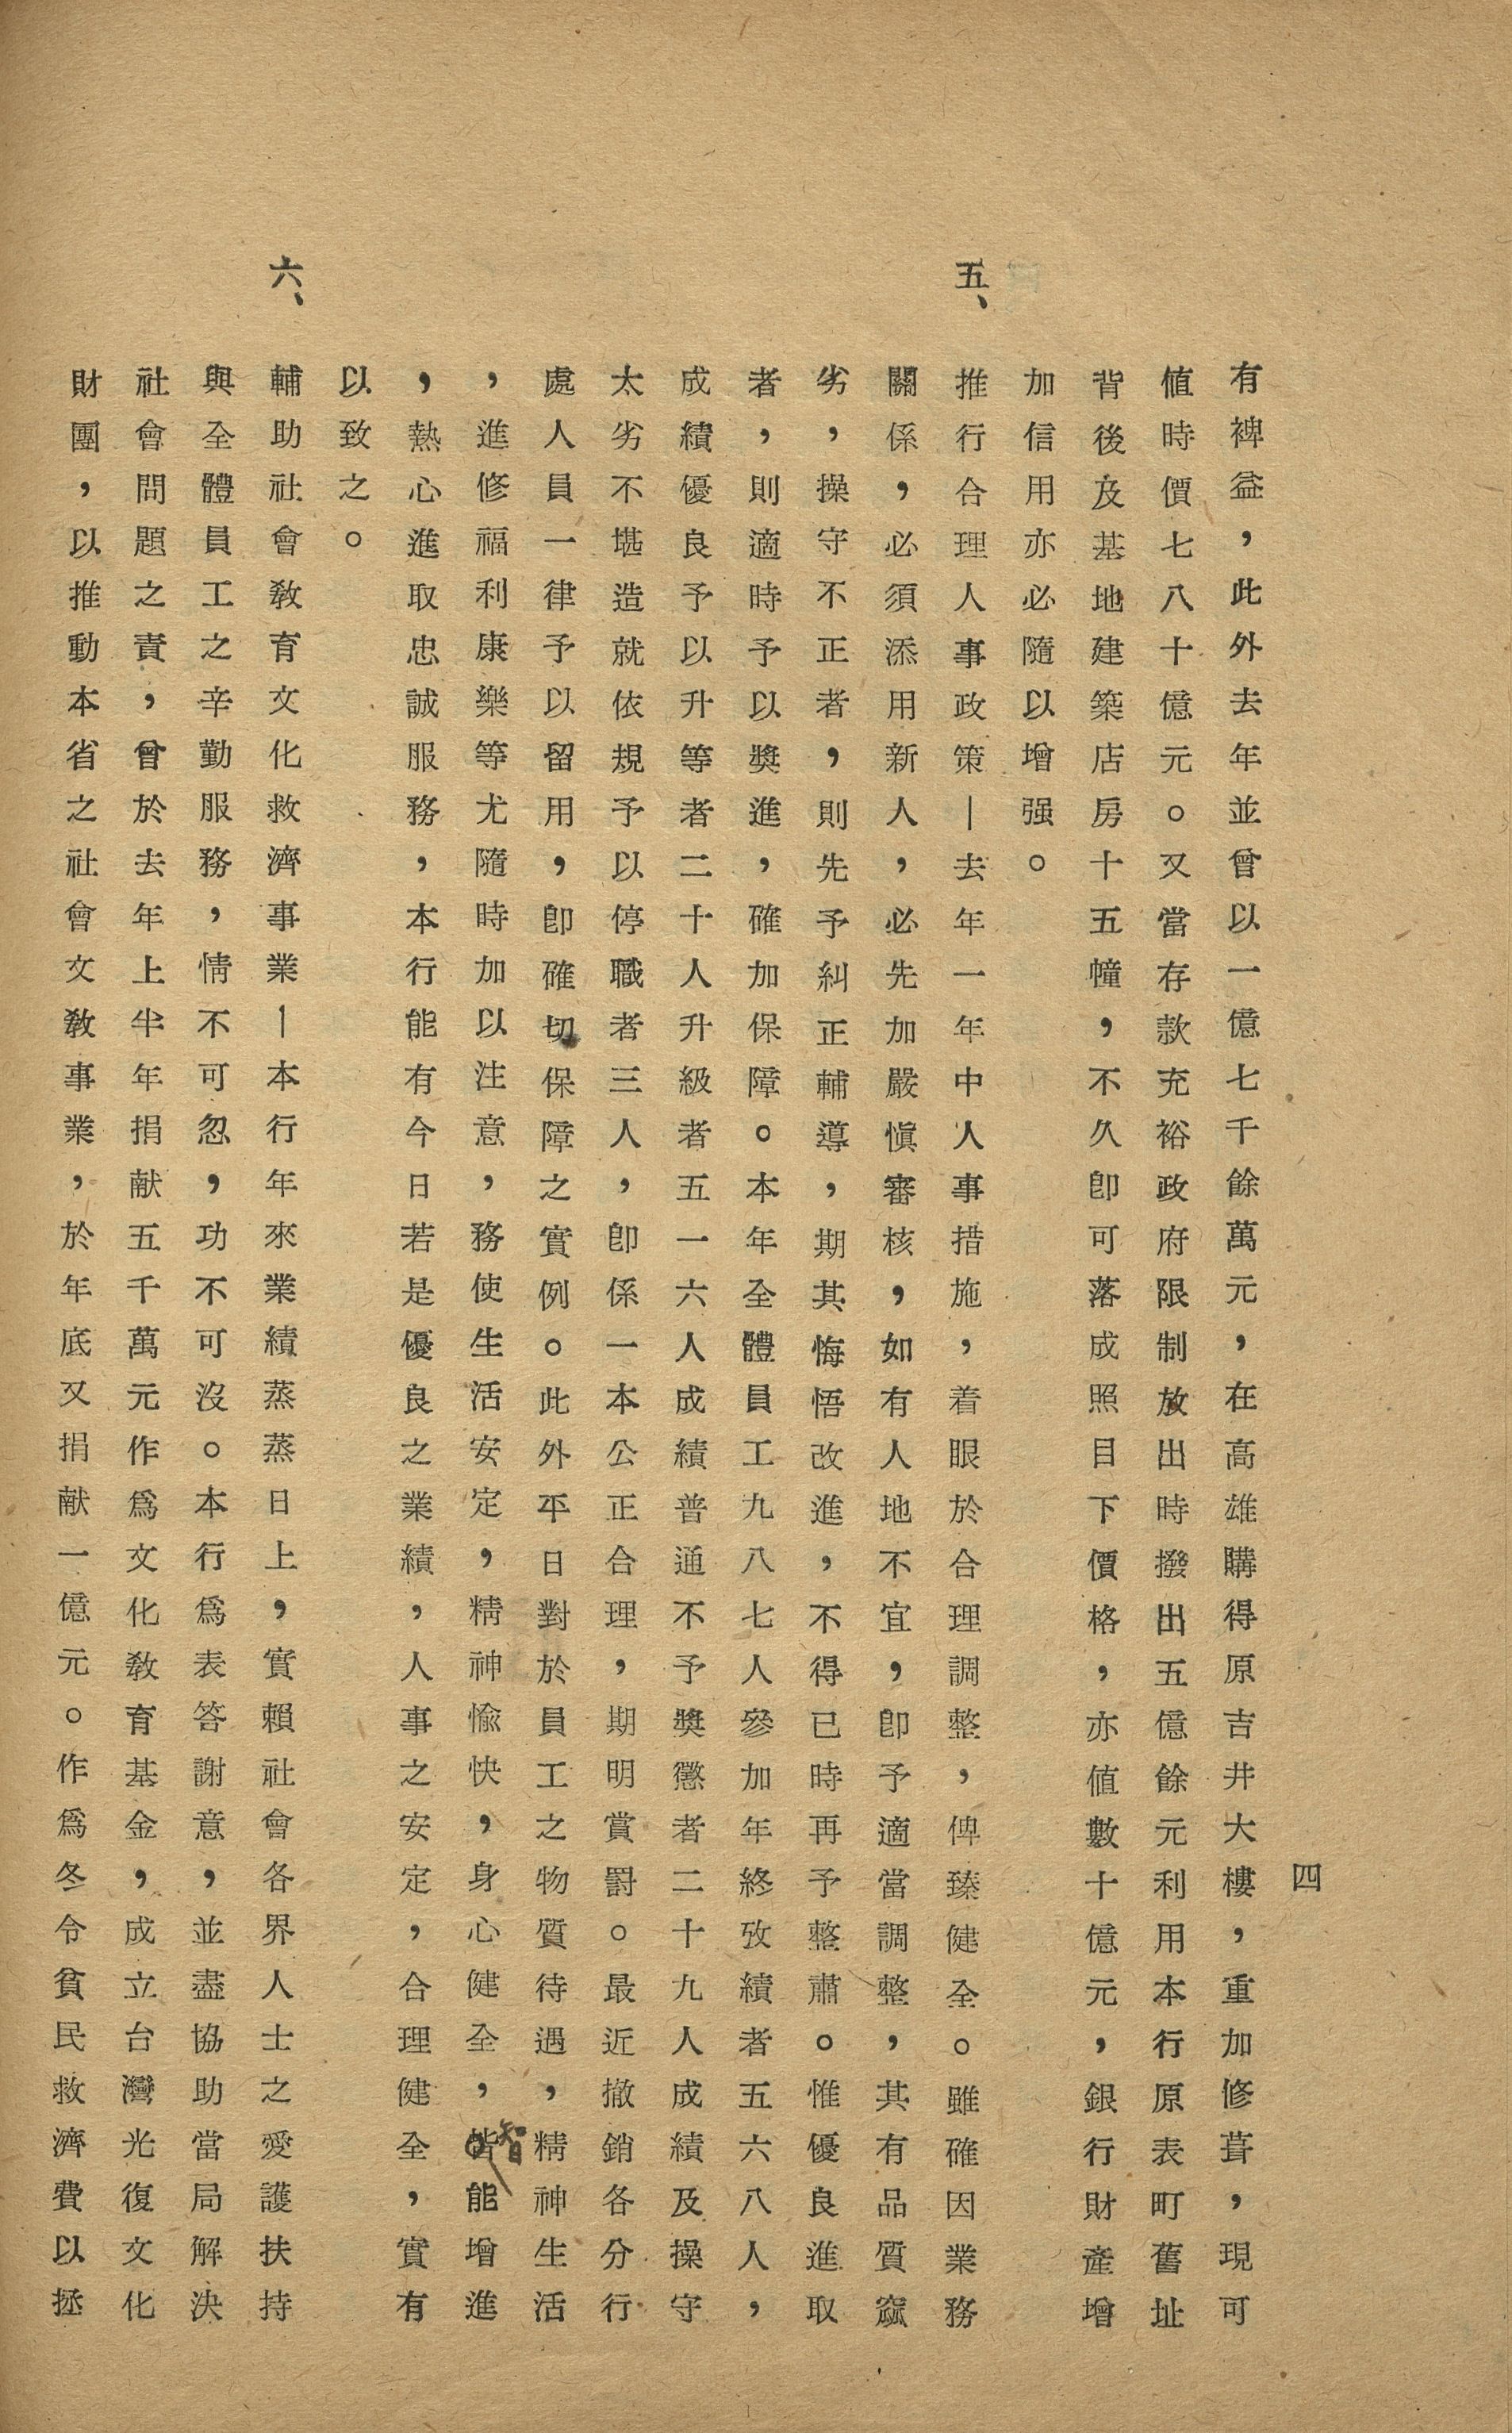 四
有裨益，此外去年並曾以一億七千餘萬元，在高雄購得原吉井大樓，重加修葺，現可
値時價七八十億元。又當存款充裕政府限制放出時撥出五億餘元利用本行原表町舊址
背後及基地建築店房十五幢，不久卽可落成照目下價格，亦値數十億元，銀行財產增
加信用亦必隨以增强。
五、推行合理人事政策—去年一年中人事措施，着眼於合理調整，俾臻健全。雖確因業務
關係，必須添用新人，必先加嚴愼審核，如有人地不宜，卽予適當調整，其有品質窳
劣，操守不正者，則先予糾正輔導，期其悔悟改進，不得已時再予整肅。惟優良進取
者，則適時予以獎進，確加保障。本年全體員工九八七人參加年終攷績者五六八人，
成績優良予以升等者二十人升級者五一六人成績普通不予獎懲者二十九人成績及操守
太劣不堪造就依規予以停職者三人，卽係一本公正合理，期明賞罰。最近撤銷各分行
處人員一律予以留用，卽確切保障之實例。此外平日對於員工之物質待遇，精神生活
，進修福利康樂等尤隨時加以注意，務使生活安定，精神愉快，身心健全，皆智能增進
，熱心進取忠誠服務，本行能有今日若是優良之業績，人事之安定，合理健全，實有
以致之。
六、輔助社會敎育文化救濟事業—本行年來業績蒸蒸日上，實賴社會各界人士之愛護扶持
與全體員工之辛勤服務，情不可忽，功不可沒。本行爲表答謝意，並盡協助當局解決
社會問題之責，曾於去年上半年捐献五千萬元作爲文化敎育基金，成立台灣光復文化
財團，以推動本省之社會文敎事業，於年底又捐献一億元。作爲冬令貧民救濟費以拯